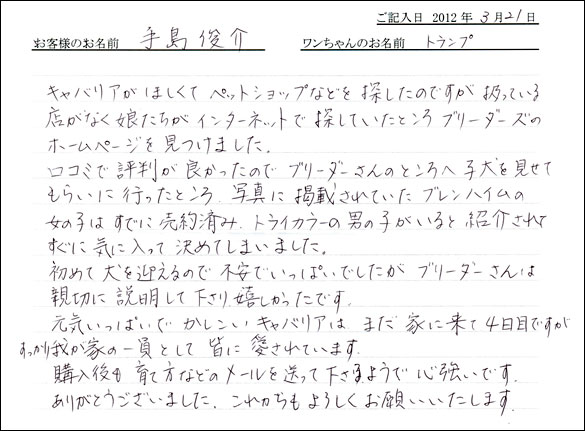 ご記入日 2012年 3月21日
お客様のお名前 手島 俊介 ワンちゃんのお名前 トランプ
キャバリアがほしくてペットショップなどを探したのですが扱っている
店がなく娘たちがインターネットで探していたところブリーダーズの
ホームページを見つけました。
口コミで評判が良かったのでブリーダーさんのところへ子犬を見せて
もらいに行ったところ、写真に掲載されていたブレンハイムの
女の子はすでに売約済み、トライカラーの男の子がいると紹介されて
すぐに気に入って決めてしまいました。
初めて犬を迎えるので不安でいっぱいでしたがブリーダーさんは
親切に説明して下さり嬉しかったです。
元気いっぱいでかしこいキャバリアはまだ家に来て4日目ですが
すっかり我が家の一員として皆に愛されています。
購入後も育て方などのメールを送って下さるようで心強いです。
ありがとうございました。これからもよろしくお願いいたします。